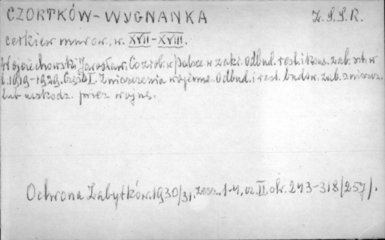 CZORTKÓW-WYGNANKA Z.S.S.R.
cerkiew murow. w. XVII - XVIII.
Wojciechowski Jarosław: Co zrob. w Polsce w zakr. odbud. rest. i kons. zab. sch. w
l. 1919-1929. Część I. Zniszczenia wojenne. Odbud. i rest. budow. zab. zniszcz.
lub uszkodz. przez wojnę.
Ochrona Zabytków. 1930/31. zesz. 1-4, cz. II. ok. 243-318 (257).